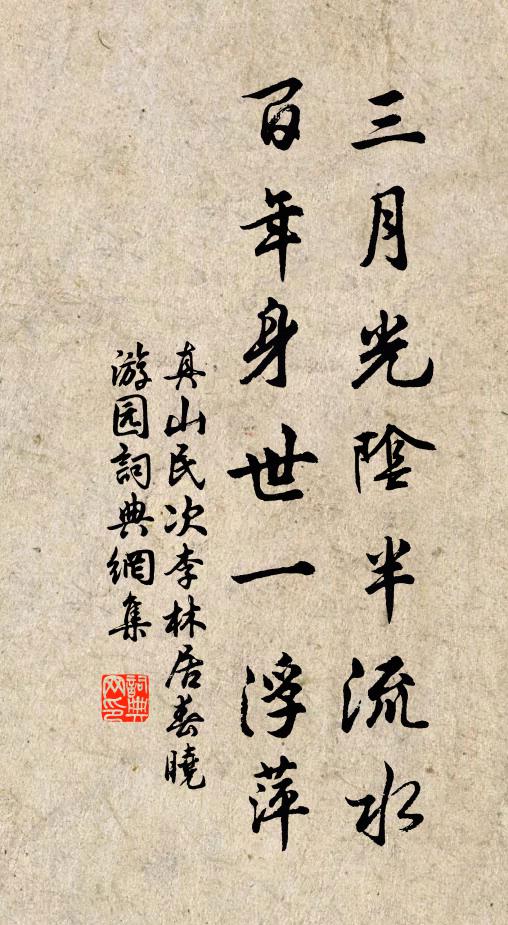 三月光陰半流水
百年身世一浮萍
真山民次李林居春曉
游园詞典網集
詞典网印